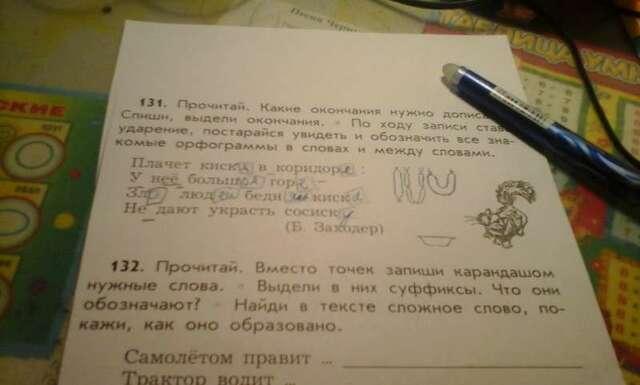 Песня Черн
ТАБЛИЦА УМ
СКИЕ
131. Прочитай. Какие окончания нужно допис
Спиши, выдели окончания. • По ходу записи став
ударение, постарайся увидеть и обозначить все зна-
комые орфограммы в словах и между словами.
Плачет киска в коридоре :
У неё большое горе –
Злые люди бедной киске
Не дают украсть сосиску
(Б. Заходер)
132. Прочитай. Вместо точек запиши карандашом
нужные слова. • Выдели в них суффиксы. Что они
обозначают? • Найди в тексте сложное слово, по-
кажи, как оно образовано.
Самолётом правит ...
Трактор водит ...